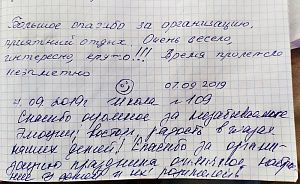 Большое спасибо за организацию,
приятный отдых Очень весело,
интересно, круто!!! Время пролетело
незаметно
07.09.2019
09 2019г. школа г. 109
Спасибо огромное за незабываемые
Эмоции, восторг, радость в глазах
наших детей! Спасибо за органи-
зацию праздника отличное настрое-
ние детей и их родителей